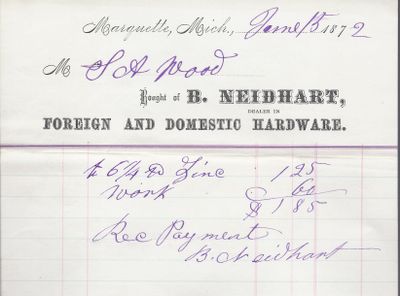 Marquette, Mich., June 15 1872
M S A Wood
Bought of B. NEIDHART,
DEALER IN
FOREIGN AND DOMESTIC HARDWARE.
6 1/4 Zinc 1 25
Work 60
$ 1 85
Rec Payment
B. Neidhart